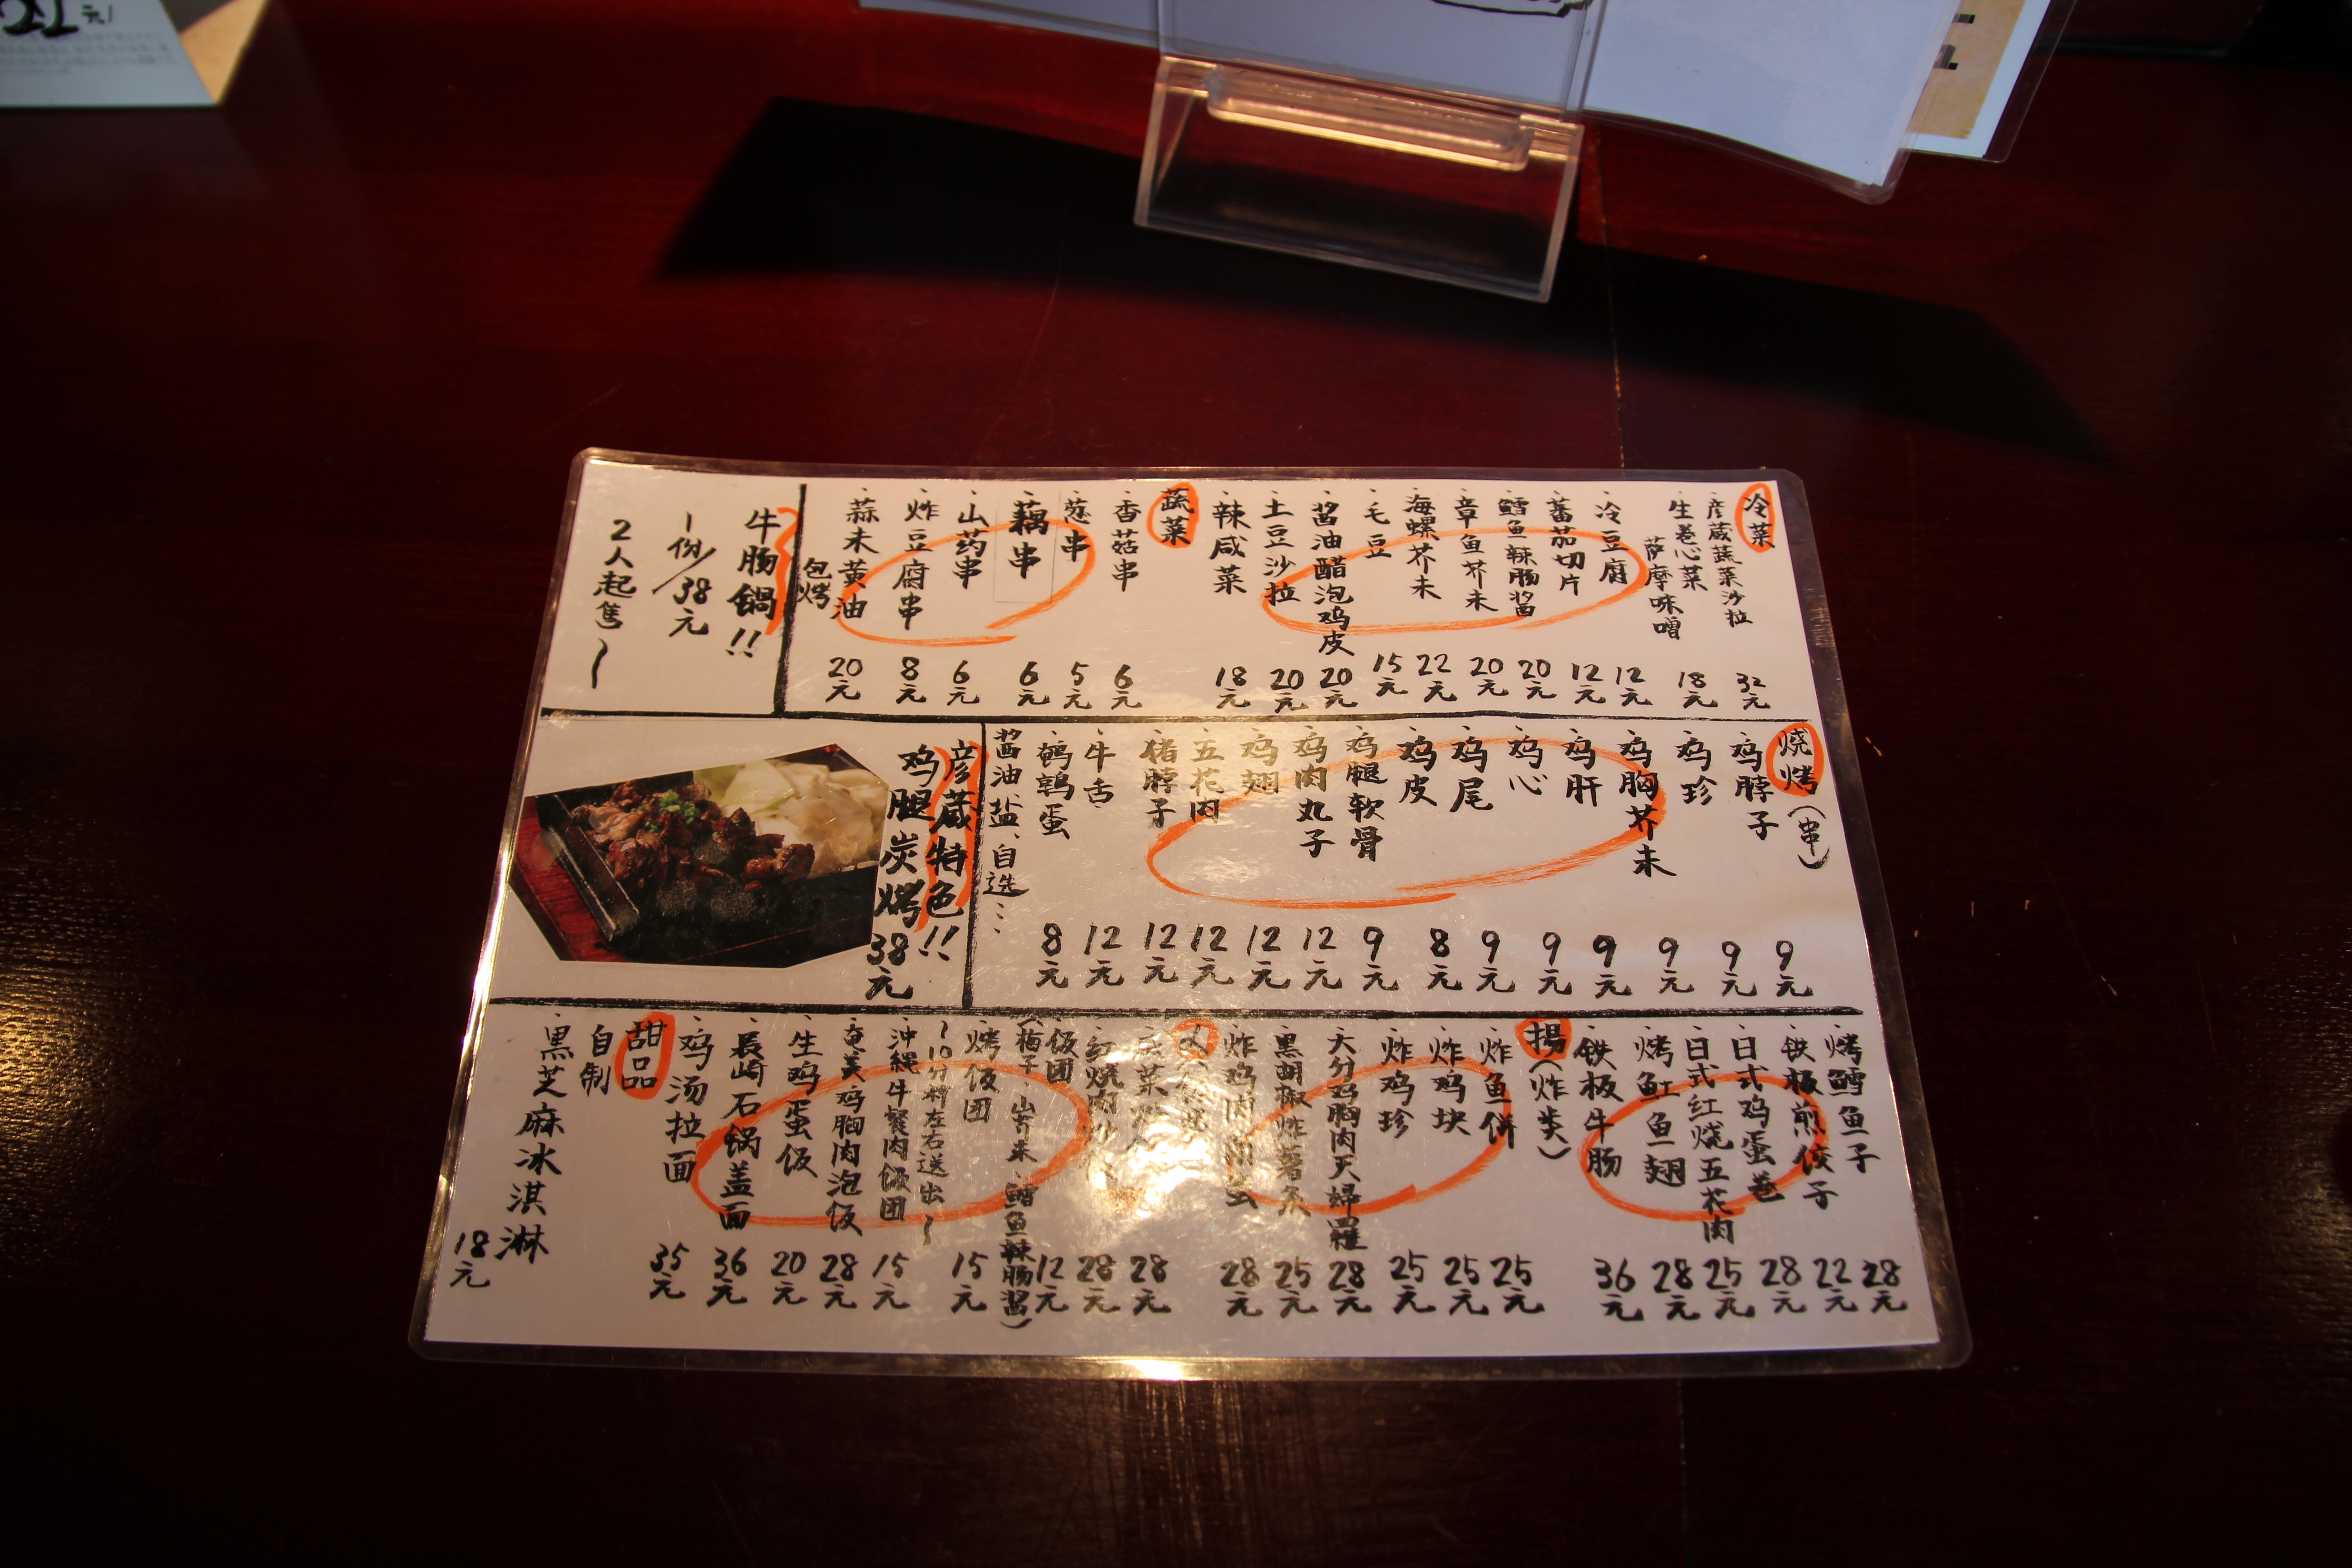 冷菜
、彦蔵蔬菜沙拉 32元
、生卷心菜
萨摩味噌 18元
、冷豆腐 12元
、蕃茄切片 12元
、鳕鱼辣肠酱 20元
、章鱼芥末 20元
、海螺芥末 22元
、毛豆 15元
、酱油醋泡鸡皮 20元
、土豆沙拉 20元
、辣咸菜 18元
蔬菜
、香菇串 6元
、葱串 5元
、藕串 6元
、山药串 6元
、炸豆腐串 8元
、蒜末黄油
包烤 20元
牛肠锅!!
1份/38元
2人起售~
烧烤(串)
、鸡脖子 9元
、鸡珍 9元
、鸡胸芥末 9元
、鸡肝 9元
、鸡心 9元
、鸡尾 9元
、鸡皮 8元
、鸡腿软骨 9元
、鸡肉丸子 12元
、鸡翅 12元
、五花肉 12元
、猪脖子 12元
、牛舌 12元
、鹌鹑蛋 8元
酱油、盐、自选…
彦蔵特色!!
鸡腿炭烤 38元
、烤鳕鱼子 28元
、铁板煎饺子 22元
、日式鸡蛋卷 28元
、日式红烧五花肉 25元
、烤魟鱼翅 28元
、铁板牛肠 36元
揚(炸类)
、炸鱼饼 25元
、炸鸡块 25元
、炸鸡珍 25元
、大分鸡胸肉天婦羅 28元
、黒胡椒炸薯条 25元
、炸鸡肉 28元
28元
、红烧肉 28元
、饭团 12元
(梅子、山芥末、鳕鱼辣肠酱)
、烤饭团 15元
~10分棉左右送出~
、沖縄牛餐肉饭团 15元
、奄美鸡胸肉泡饭 28元
、生鸡蛋饭 20元
、長崎石锅盖面 36元
、鸡汤拉面 35元
甜品
自制
、黒芝麻冰淇淋 18元
元/